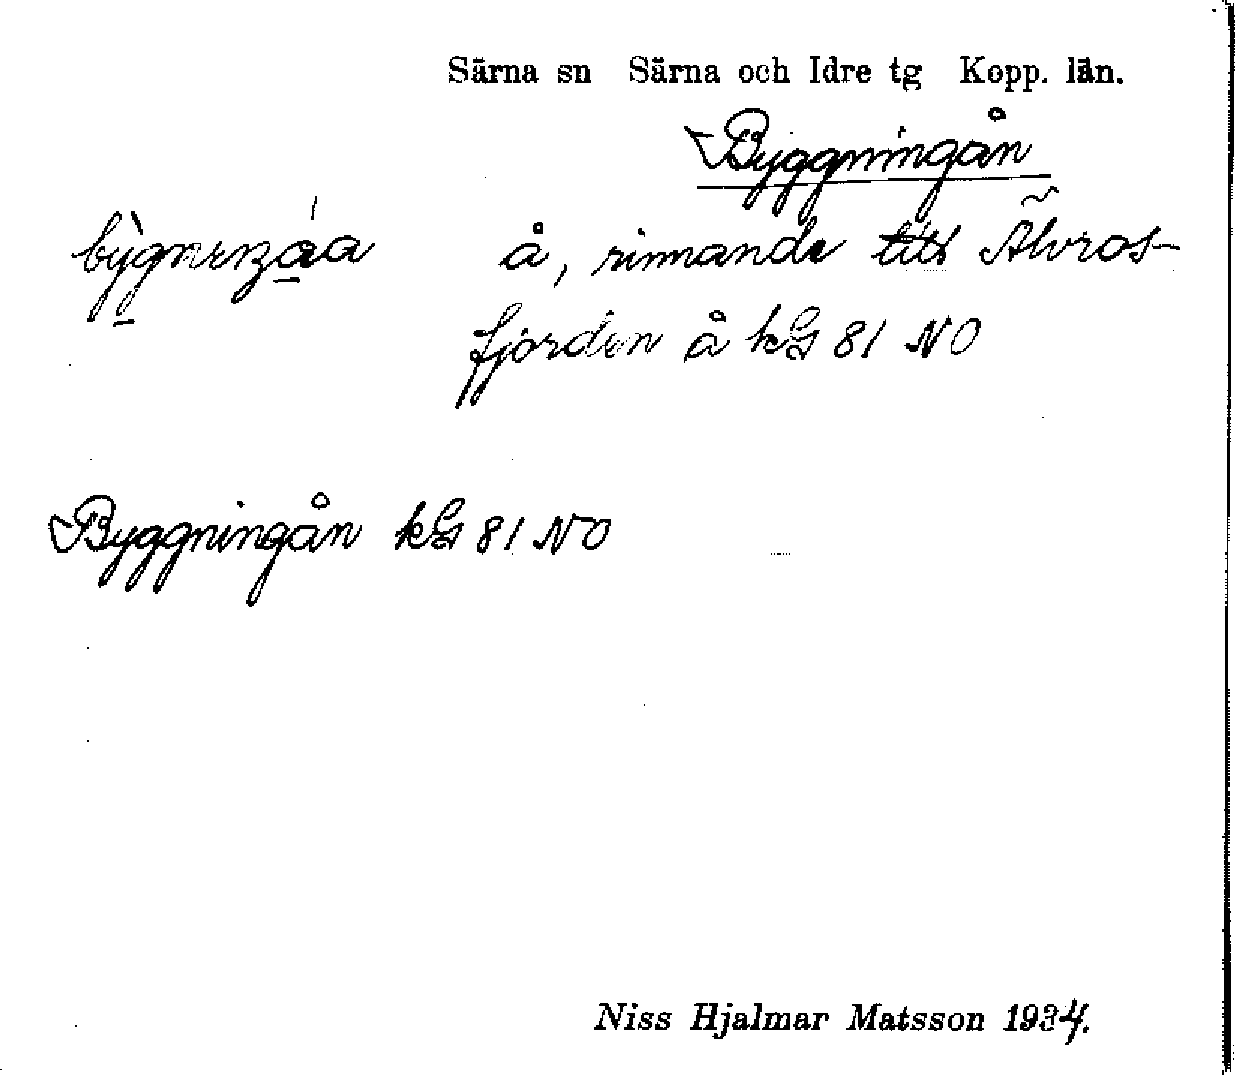 Särna sn Särna och Idre tg Kopp. län.
Byggningån
å, rinnande till Älvros-
fjorden å kG 81 NO
Byggningån kG 81 NO
Niss Hjalmar Matsson 1934.